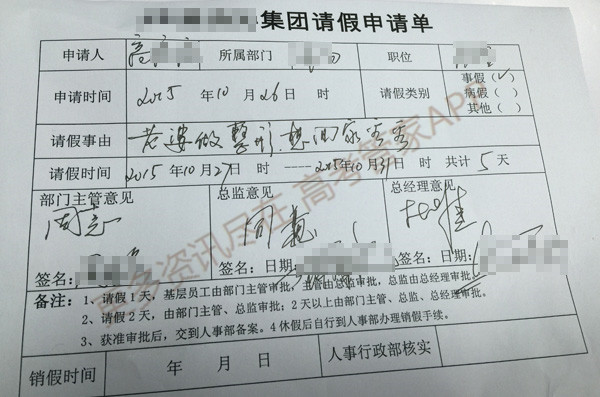 集团请假申请单
申请人 所属部门 职位
申请时间 2015 年 10 月 26 日 时 请假类别 事假（✓） 病假（ ） 其他（ ）
请假事由 老婆做整形,想回家看看
请假时间 2015 年 10 月 27 日 时 ----2015 年 10 月 31 日 时 共计 5 天
部门主管意见 总监意见 总经理意见
同意 同意 同意
签名： 日期： 签名： 日期： 签名： 日期：
备注：1、请假1天，基层员工由部门主管审批，主管由总监审批，总监由总经理审批。
2、请假2天，由部门主管、总监审批；2天以上由部门主管、总监、总经理审批。
3、获准审批后，交到人事部备案。4 休假后自行到人事部办理销假手续。
销假时间 年 月 日 人事行政部核实
更多资讯尽在高考管家APP